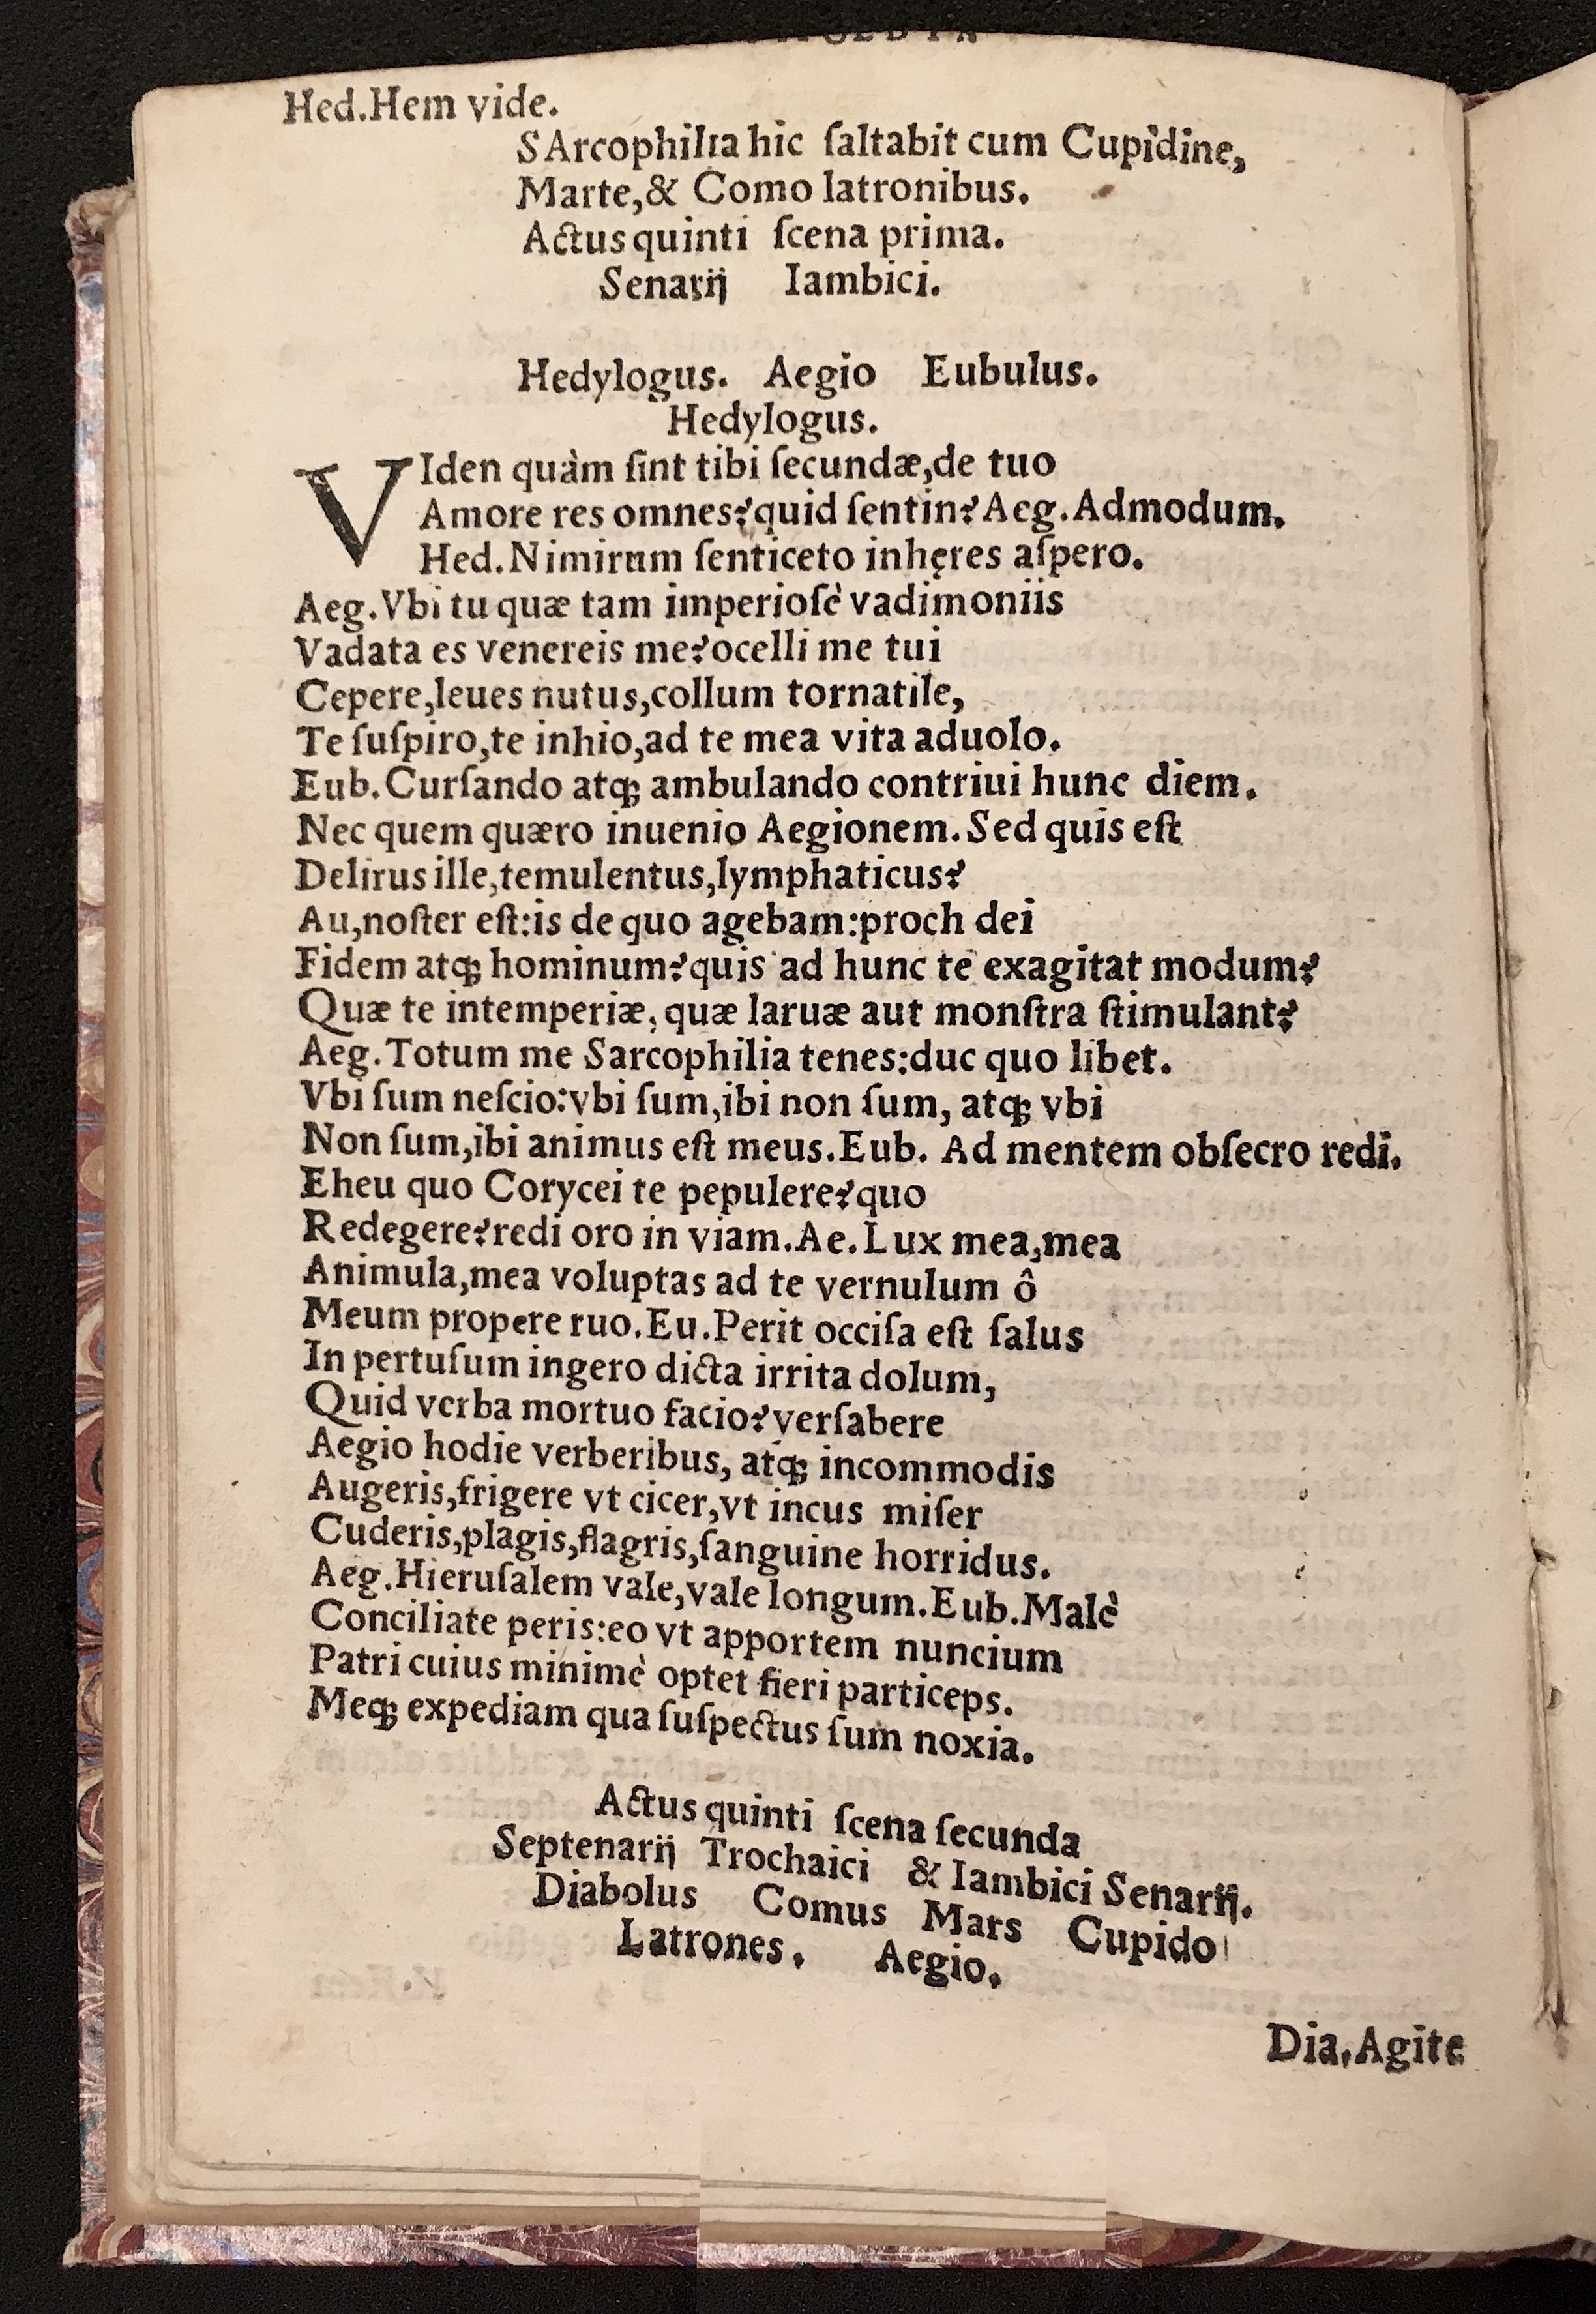 Hed.Hem vide.
SArcophilia hic ſaltabit cum Cupìdine,
Marte,& Como latronibus.
Actus quinti ſcena prima.
Senarij Iambici.
Hedylogus. Aegio Eubulus.
Hedylogus.
VIden quàm ſint tibi ſecundæ,de tuo
Amore res omnes?quid ſentin?Aeg.Admodum.
Hed.Nimirum ſenticeto inhęres aſpero.
Aeg.Vbi tu quæ tam imperioſè vadimoniis
Vadata es venereis me?ocelli me tui
Cepere,leues nutus,collum tornatile,
Te ſuſpiro,te inhio,ad te mea vita aduolo.
Eub.Curſando atq; ambulando contriui hunc diem.
Nec quem quæro inuenio Aegionem.Sed quis eſt
Delirus ille,temulentus,lymphaticus?
Au,noſter eſt:is de quo agebam:proch dei
Fidem atq; hominum?quis ad hunc te exagitat modum?
Quæ te intemperiæ, quæ laruæ aut monſtra ſtimulant?
Aeg.Totum me Sarcophilia tenes:duc quo libet.
Vbi ſum neſcio:vbi ſum,ibi non ſum, atq; vbi
Non ſum,ibi animus eſt meus.Eub. Ad mentem obſecro redi.
Eheu quo Corycei te pepulere?quo
Redegere?redi oro in viam.Ae.Lux mea,mea
Animula,mea voluptas ad te vernulum ô
Meum propere ruo.Eu.Perit occiſa eſt ſalus
In pertuſum ingero dicta irrita dolum,
Quid verba mortuo facio?verſabere
Aegio hodie verberibus, atq; incommodis
Augeris,frigere vt cicer,vt incus miſer
Cuderis,plagis,flagris,ſanguine horridus.
Aeg.Hieruſalem vale,vale longum.Eub.Malè
Conciliate peris:eo vt apportem nuncium
Patri cuius minimè optet fieri particeps.
Meq; expediam qua ſuſpectus ſum noxia.
Actus quinti ſcena ſecunda
Septenarij Trochaici & Iambici Senarij.
Diabolus Comus Mars Cupido
Latrones. Aegio.
Dia.Agite